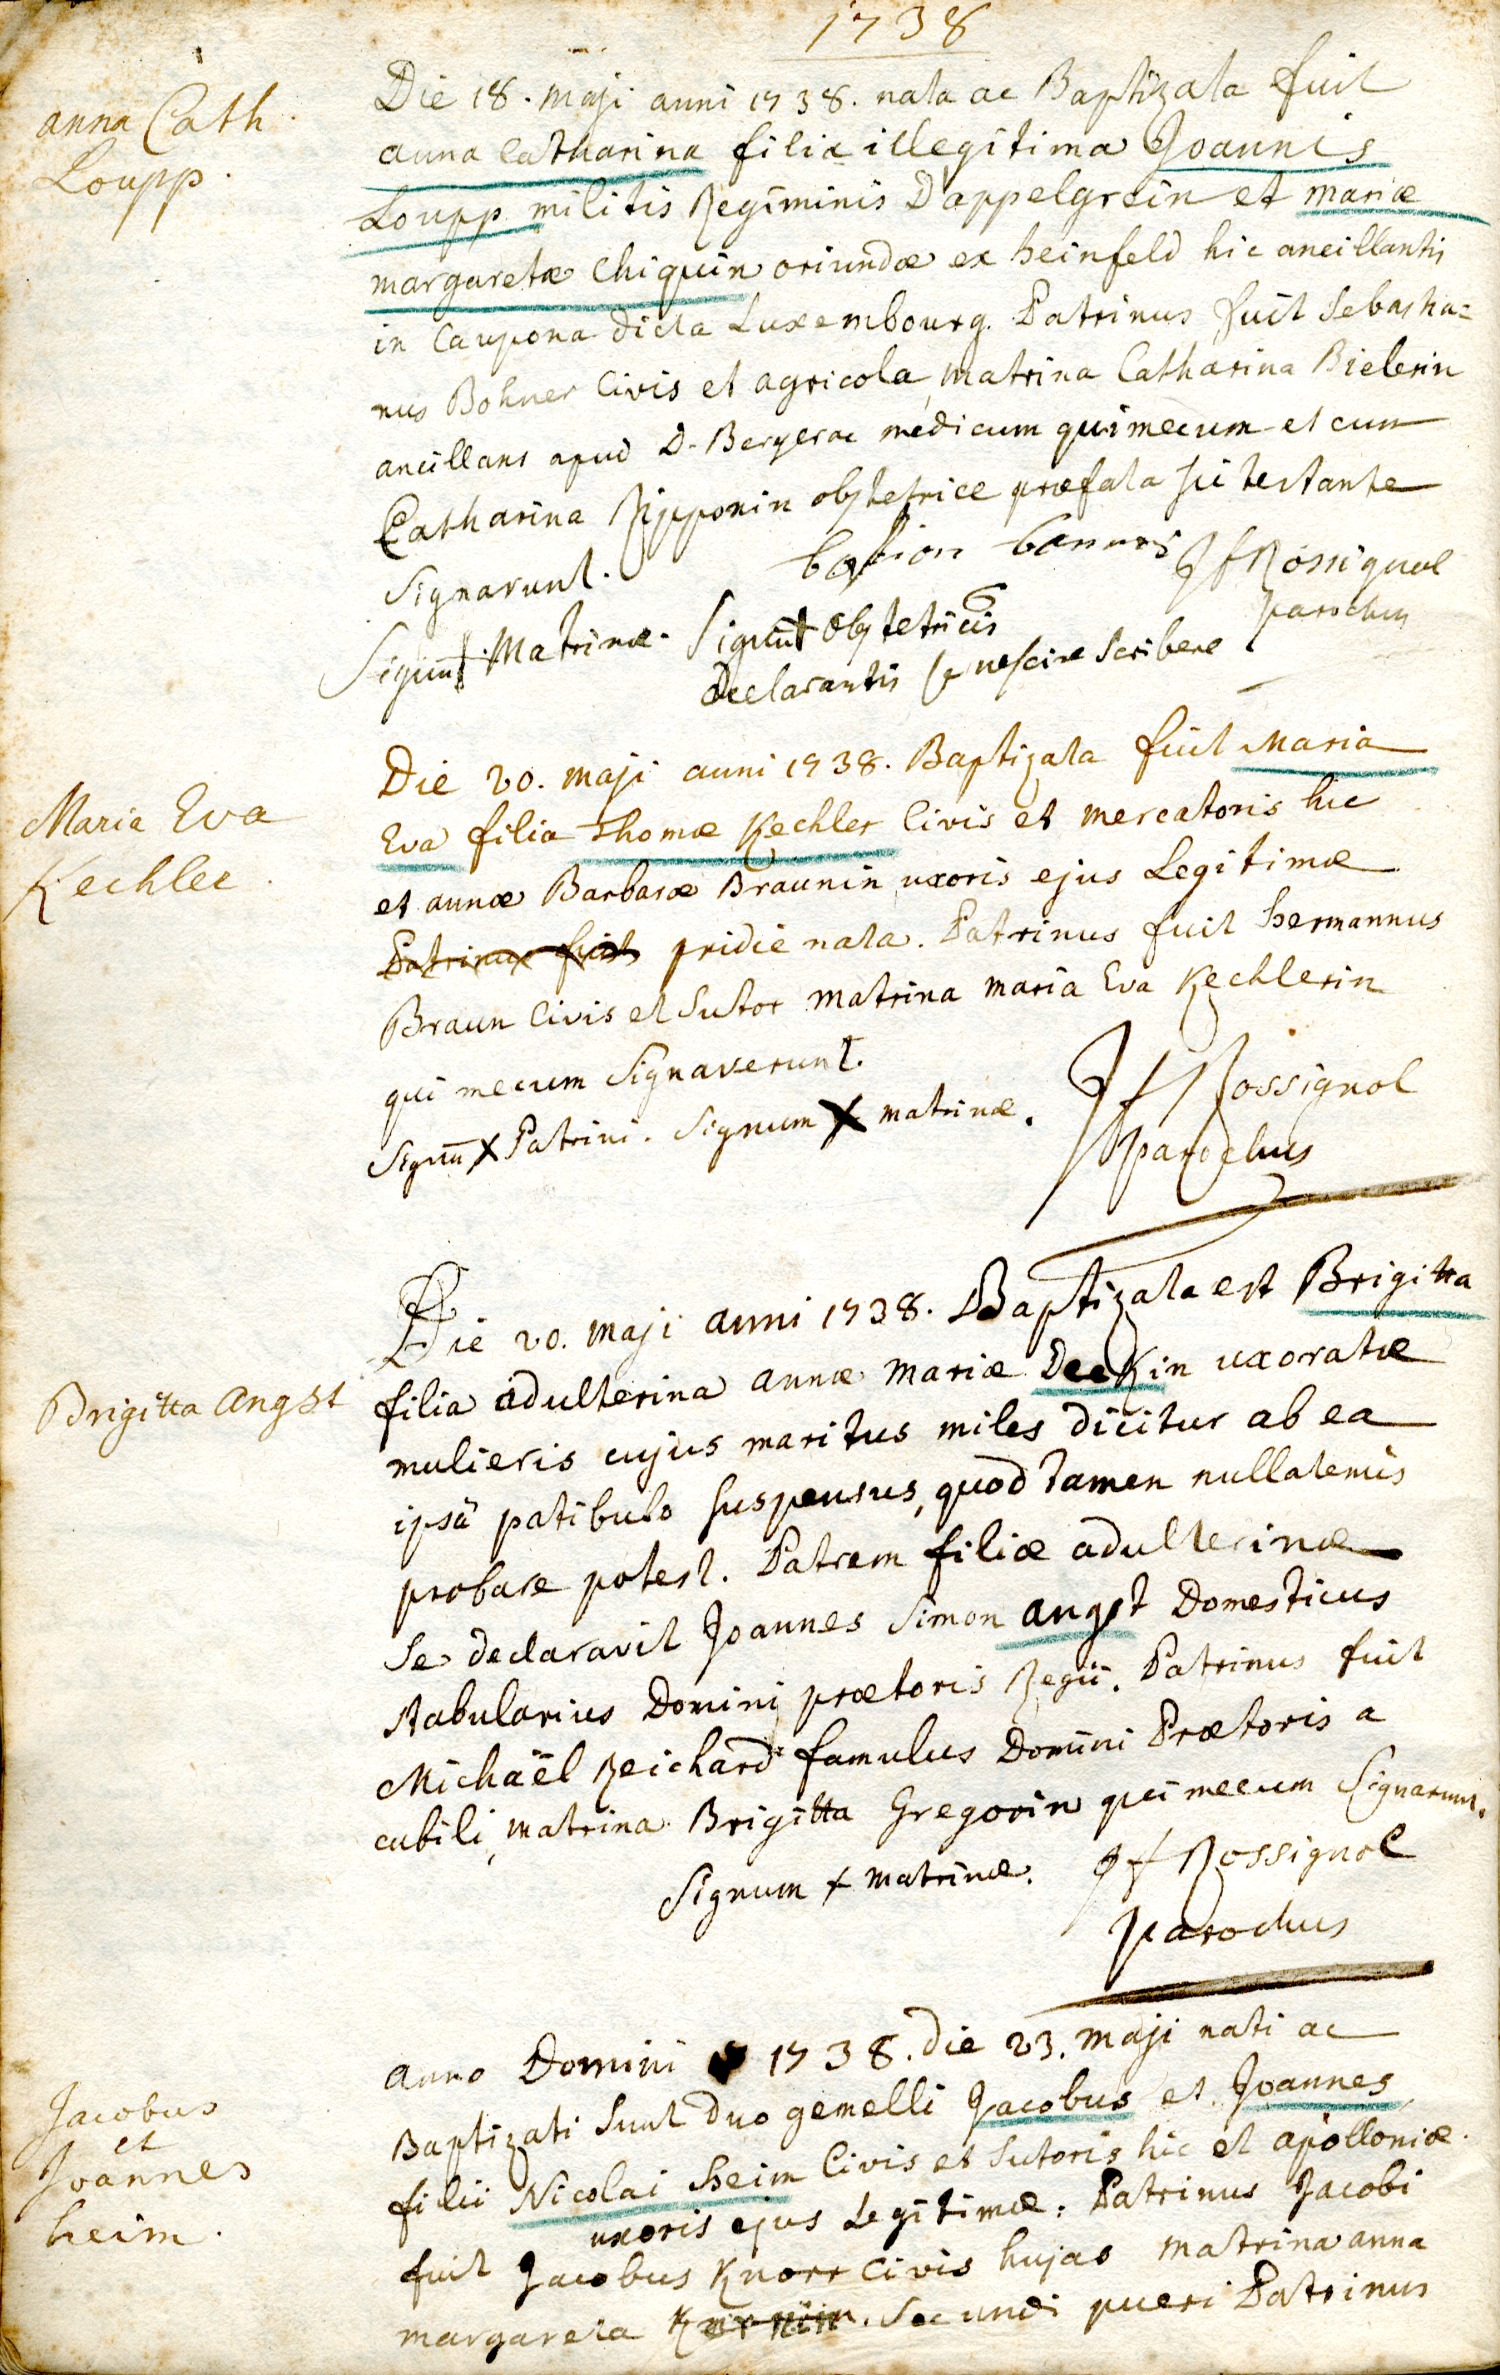 1738
anna Cath.
Loupp.
Die 18. maji anni 1738. nata ac Baptizata fuit
anna Catharina filia illegitima Joannis
Loupp militis Regiminis D'appelgrein et mariæ
margaretæ Chiquin oriundæ ex heinfeld hic ancillantis
in Caupona dicta Luxembourg. Patrinus fuit Sebastia=
nus Bohner Civis et agricola, matrina Catharina Bielerin
ancillans apud D. Bergerac medicum qui mecum et cum
Catharina obstetrice præfata sic testante
Signarunt.
JfRossignol
parochus
Signū † Matrinæ. Signū † Obstetricis
declarantis se nescire scribere
Maria Eva
Kechler.
Die 20. maji anni 1738. Baptizata fuit Maria
Eva filia Thomæ Kechler Civis et mercatoris hic
et annæ Barbaræ Braunin uxoris ejus Legitimæ
Patrinus fuit pridie nata. Patrinus fuit hermannus
Braun Civis et Sutor matrina maria Eva Kechlerin
qui mecum Signaverunt.
Signū X Patrini. Signum X matrinæ.
Jf Rossignol
parochus
Brigitta Angst
Die 20. maji anni 1738. Baptizata est Brigitta
filia adulterina annæ mariæ Deekin uxoratæ
mulieris cujus maritus miles dicitur ab ea
ipsâ patibulo suspensus, quod tamen nullatenus
probare potest. Patrem filiæ adulterinæ
Se declaravit Joannes Simon angst Domesticus
stabularius Domini prætoris Regii. Patrinus fuit
Michaël Reichard famulus Domini Prætoris a
cubili, matrina Brigitta Gregorin qui mecum Signarunt.
Signum + matrinæ.
Jf Rossignol
parochus
Jacobus
et
Joannes
heim.
anno Domini 1738. die 23. maji nati ac
Baptizati sunt duo gemelli Jacobus et Joannes
filii Nicolai heim Civis et Sutoris hic et apolloniæ
uxoris ejus Legitimæ. Patrinus Jacobi
fuit Jacobus Knorr civis hujas matrina anna
margareta Secundi pueri Patrinus